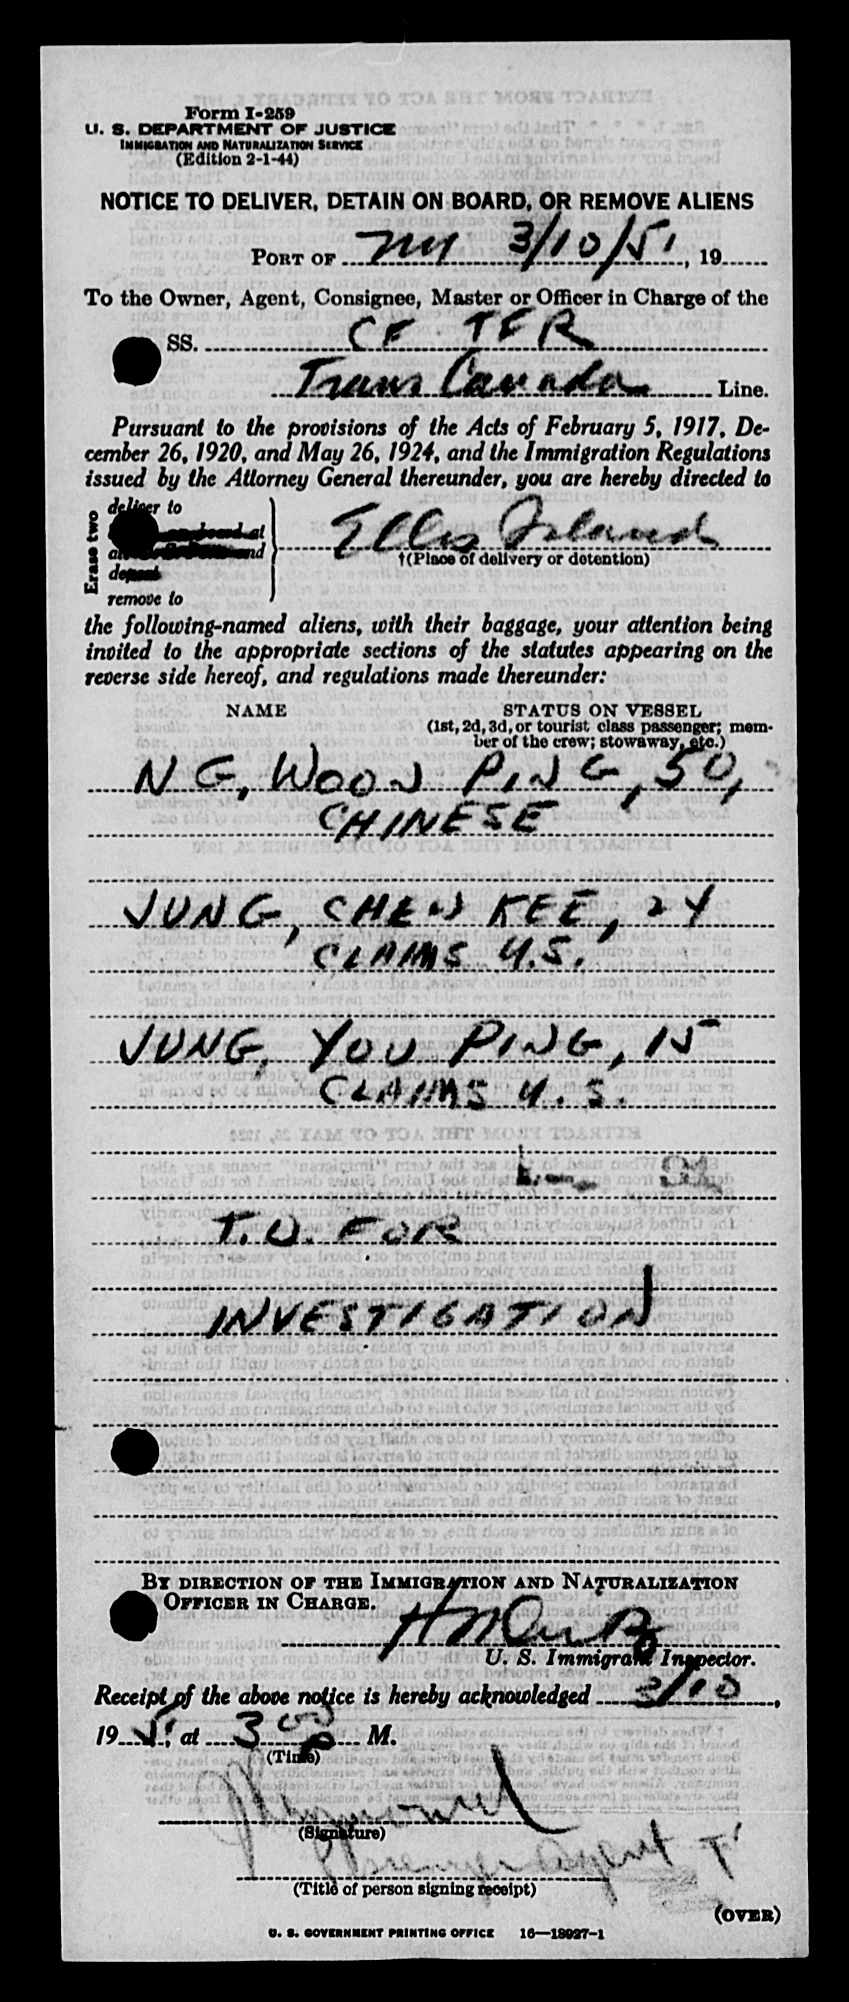 Form I-259
U. S. DEPARTMENT OF JUSTICE
IMMIGRATION AND NATURALIZATION SERVICE
(Edition 2-1-44)
NOTICE TO DELIVER, DETAIN ON BOARD, OR REMOVE ALIENS
PORT OF NY 3/10/51, 19
To the Owner, Agent, Consignee, Master or Officer in Charge of the
SS. CF TFR
Trans Canada Line.
Pursuant to the provisions of the Acts of February 5, 1917, De-
cember 26, 1920, and May 26, 1924, and the Immigration Regulations
issued by the Attorney General thereunder, you are hereby directed to
Erase two
deliver to
at
and
remove to
Ellis Island
†(Place of delivery or detention)
the following-named aliens, with their baggage, your attention being
invited to the appropriate sections of the statutes appearing on the
reverse side hereof, and regulations made thereunder:
NAME STATUS ON VESSEL
(1st, 2d, 3d, or tourist class passenger; mem-
ber of the crew; stowaway, etc.)
NG, WOON PING, 50,
CHINESE
JUNG, CHEW KEE, 24
CLAIMS U.S.
JUNG, YOU PING, 15
CLAIMS U.S.
T.D. FOR
INVESTIGATION
BY DIRECTION OF THE IMMIGRATION AND NATURALIZATION
OFFICER IN CHARGE.
U. S. Immigrant Inspector.
Receipt of the above notice is hereby acknowledged 3/10,
19 51, at 3 00 p M.
(Time)
(Signature)
Passenger Agent
(Title of person signing receipt)
(OVER)
U. S. GOVERNMENT PRINTING OFFICE 16—18927-1